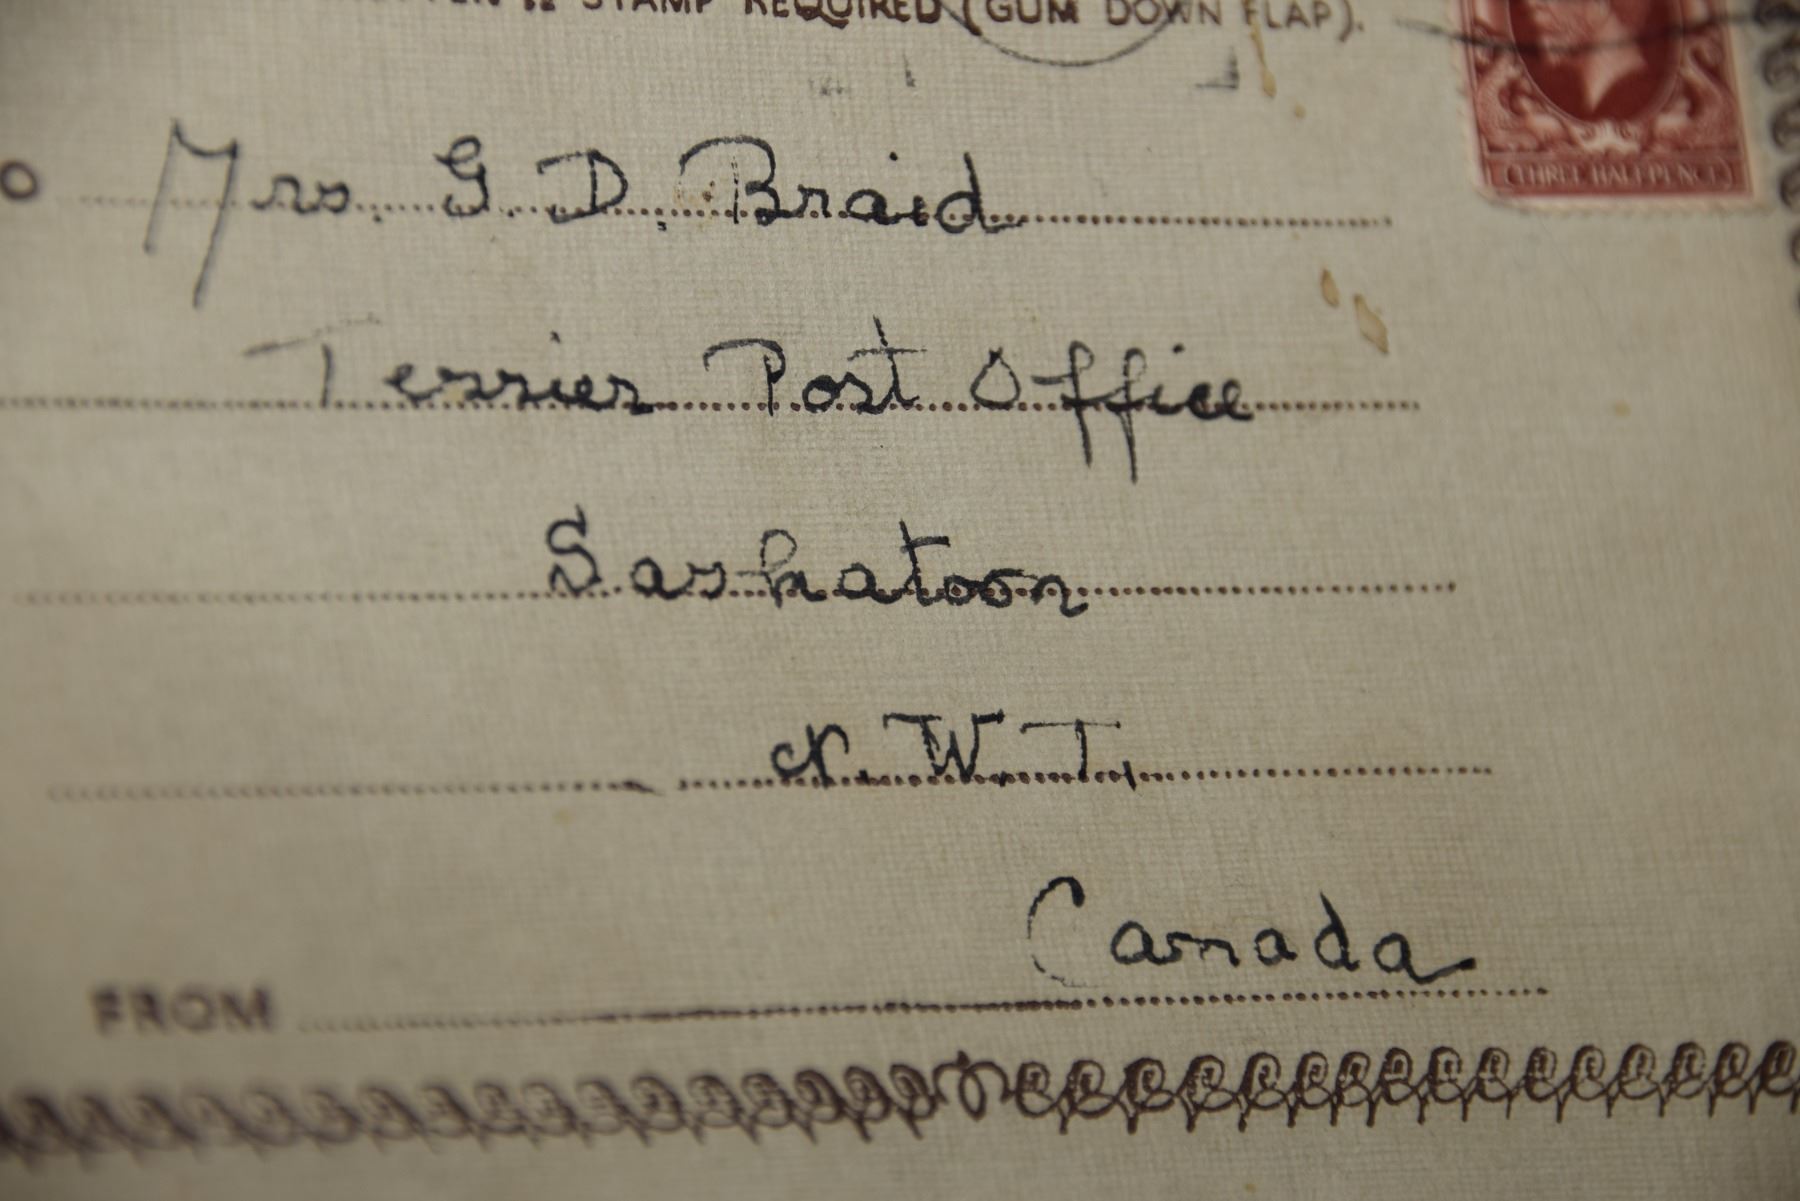 STAMP REQUIRED (GUM DOWN FLAP).
(THREE HALFPENCE)
O Mrs. G. D. Braid
Terrier Post Office
Saskatoon
N. W. T.
Canada
FROM